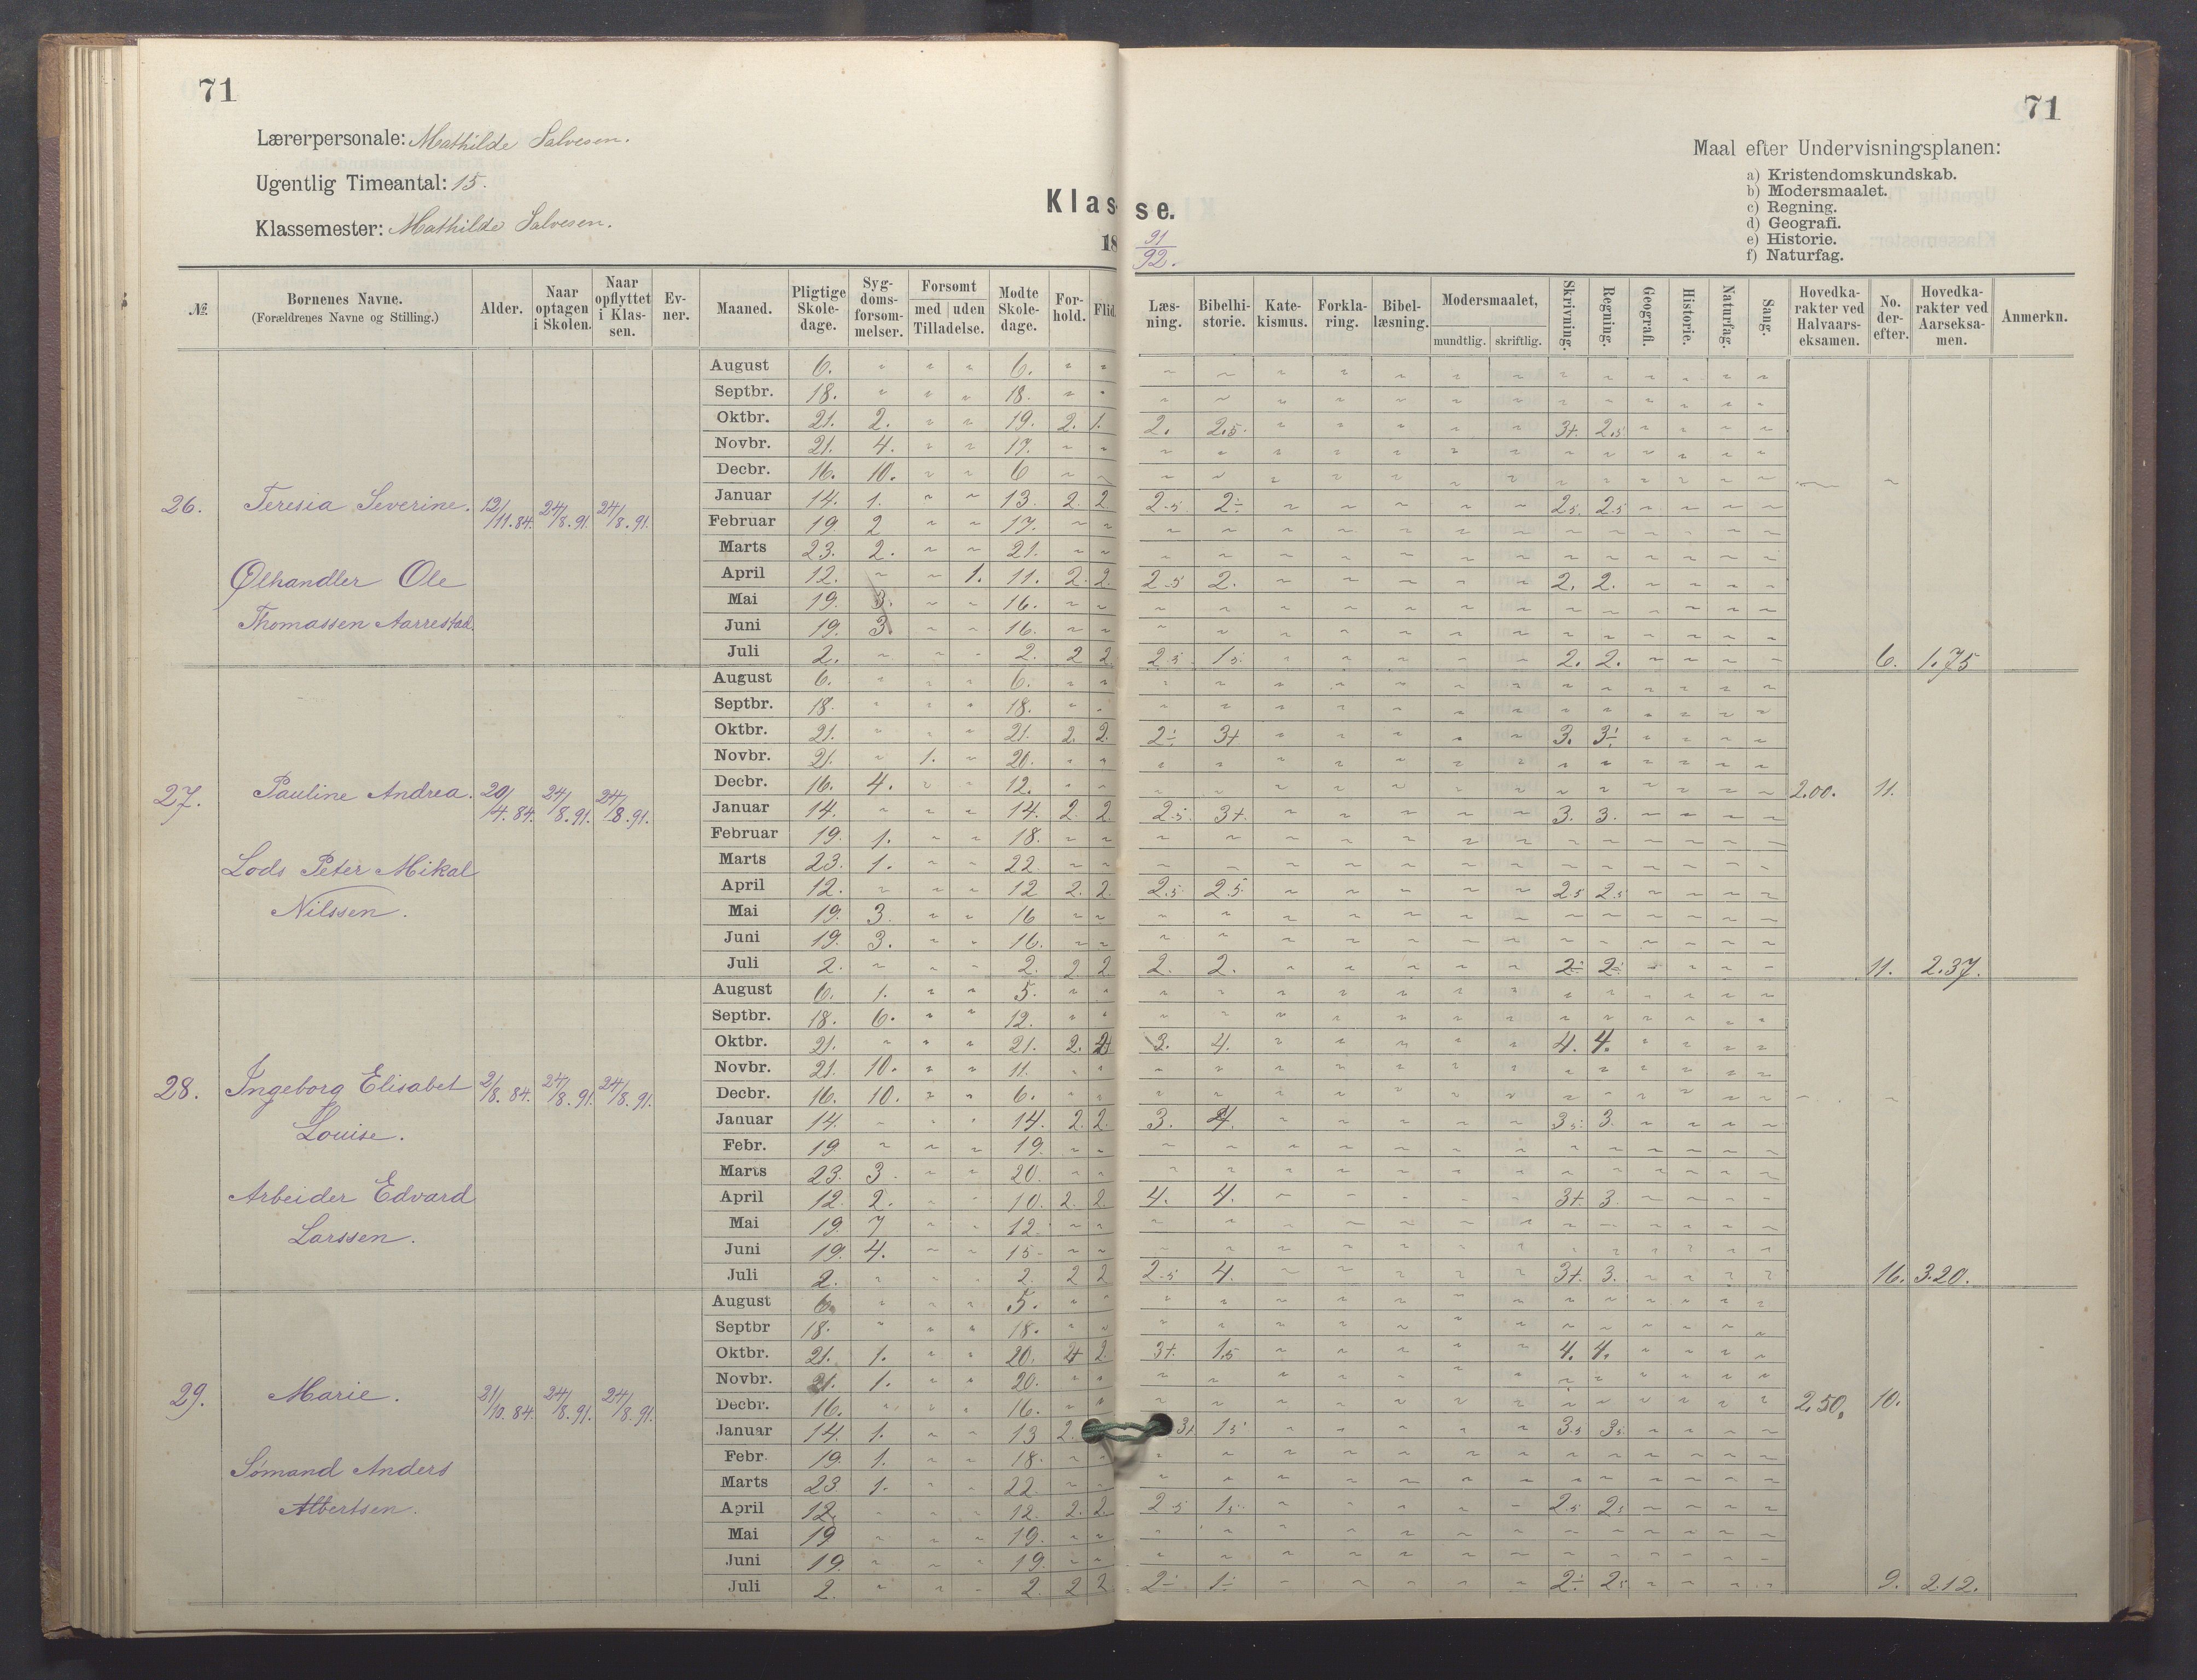 71
71
Lærerpersonale: Mathilde Salvesen.
Ugentlig Timeantal: 15.
Klassemester: Mathilde Salvesen.
Klasse.
18 91/92.
Maal efter Undervisningsplanen:
a) Kristendomskundskab.
b) Modersmaalet.
c) Regning.
d) Geografi.
e) Historie.
f) Naturfag.
№ Børnenes Navne. (Forældrenes Navne og Stilling.) Alder. Naar optagen i Skolen. Naar opflyttet i Klassen. Evner. Maaned. Pligtige Skoledage. Sygdomsforsømmelser. Forsømt med uden Tilladelse. Mødte Skoledage. Forhold. Flid. Læsning. Bibelhistorie. Katekismus. Forklaring. Bibellæsning. Modersmaalet, mundtlig. skriftlig. Skrivning. Regning. Geografi. Historie. Naturfag. Sang. Hovedkarakter ved Halvaarseksamen. No. derefter. Hovedkarakter ved Aarseksamen. Anmerkn.
26. Teresia Severine. 12/11.84. 24/8.91. 24/8.91.
Ølhandler Ole
Thomassen Aarrestad.
August 6. " " " 6. " "
Septbr. 18. " " " 18. " "
Oktbr. 21. 2. " " 19. 2. 1. 2. 2.5. 3+. 2.5
Novbr. 21. 4. " " 17. " "
Decbr. 16. 10. " " 6 " "
Januar 14. 1. " " 13. 2. 2. 2.5. 2÷ 2.5. 2.5
Februar 19 2 " " 17. " "
Marts 23. 2. " " 21. " "
April 12. " " 1. 11. 2. 2. 2.5 2. 2. 2.
Mai 19. 3. " " 16. " "
Juni 19. 3. " " 16. " "
Juli 2. " " " 2. 2 2. 2.5. 1.5. 2. 2. 6. 1.75
27. Pauline Andrea. 20/4.84. 24/8.91. 24/8.91.
Lods Peter Mikal
Nilssen.
August 6. " " " 6. " "
Septbr. 18. " " " 18. " "
Oktbr. 21. " " " 21. 2. 2. 2÷ 3+ 3. 3÷
Novbr. 21. " 1. " 20. " "
Decbr. 16. 4. " " 12. " " 2.00. 11.
Januar 14. " " " 14. 2. 2. 2.5. 3+. 3. 3.
Februar 19. 1. " " 18. " "
Marts 23. 1. " " 22. " "
April 12. " " " 12 2. 2. 2.5. 2.5. 2.5 2.5
Mai 19. 3. " " 16 " "
Juni 19. 3. " " 16. " "
Juli 2. " " " 2. 2 2 2. 2. 2÷ 2÷ 11. 2.37.
28. Ingeborg Elisabet 2/8.84. 24/8.91. 24/8.91.
Louise.
Arbeider Edvard
Larssen.
August 6. 1. " " 5. " "
Septbr. 18. 6. " " 12. " "
Oktbr. 21. " " " 21. 2. 3. 4. 4. 4.
Novbr. 21. 10. " " 11. " "
Decbr. 16. 10. " " 6. " "
Januar 14. " " " 14. 2. 2. 3. 4. 3.5. 3.
Febr. 19 " " " 19. " "
Marts 23. 3. " " 20. " "
April 12. 2. " " 10. 2. 2 4. 4. 3+. 3.
Mai 19. 7 " " 12. " "
Juni 19. 4. " " 15 " "
Juli 2. " " " 2. 2 2 2.5 4. 3+. 3. 16. 3.20.
29. Marie. 21/10.84. 24/8.91. 24/8.91.
Sömand Anders
Albertsen.
August 6. " " " 5. " "
Septbr 18. " " " 18. " "
Oktbr. 21. 1. " " 20. 2 3+. 1.5 4. 4.
Novbr. 21. 1. " " 20. " "
Decbr. 16. " " " 16. " " 2.50. 10.
Januar 14. 1. " " 13 2. 3+ 1.5 3.5 3.5.
Febr. 19. 1. " " 18. " "
Marts 23 1. " " 22. " "
April 12. " " " 12. 2. 2. 2.5 1.5. 2.5 2.5
Mai 19 " " " 19. " "
Juni 19. " " " 19. " "
Juli 2. " " " 2. 2 2. 2÷ 1÷ 2÷ 2.5 9. 2.12.